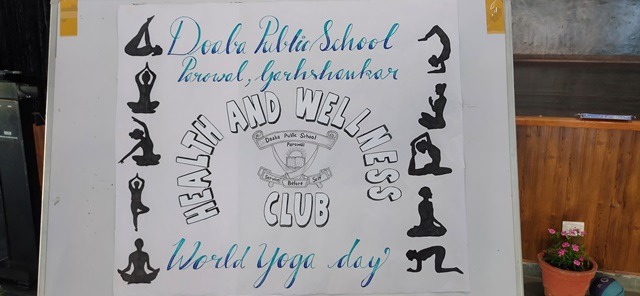 Doaba Public School
Parowal, Garhshankar
HEALTH AND WELLNESS
Doaba Public School
Parowal
Service Before Self
CLUB
World Yoga day